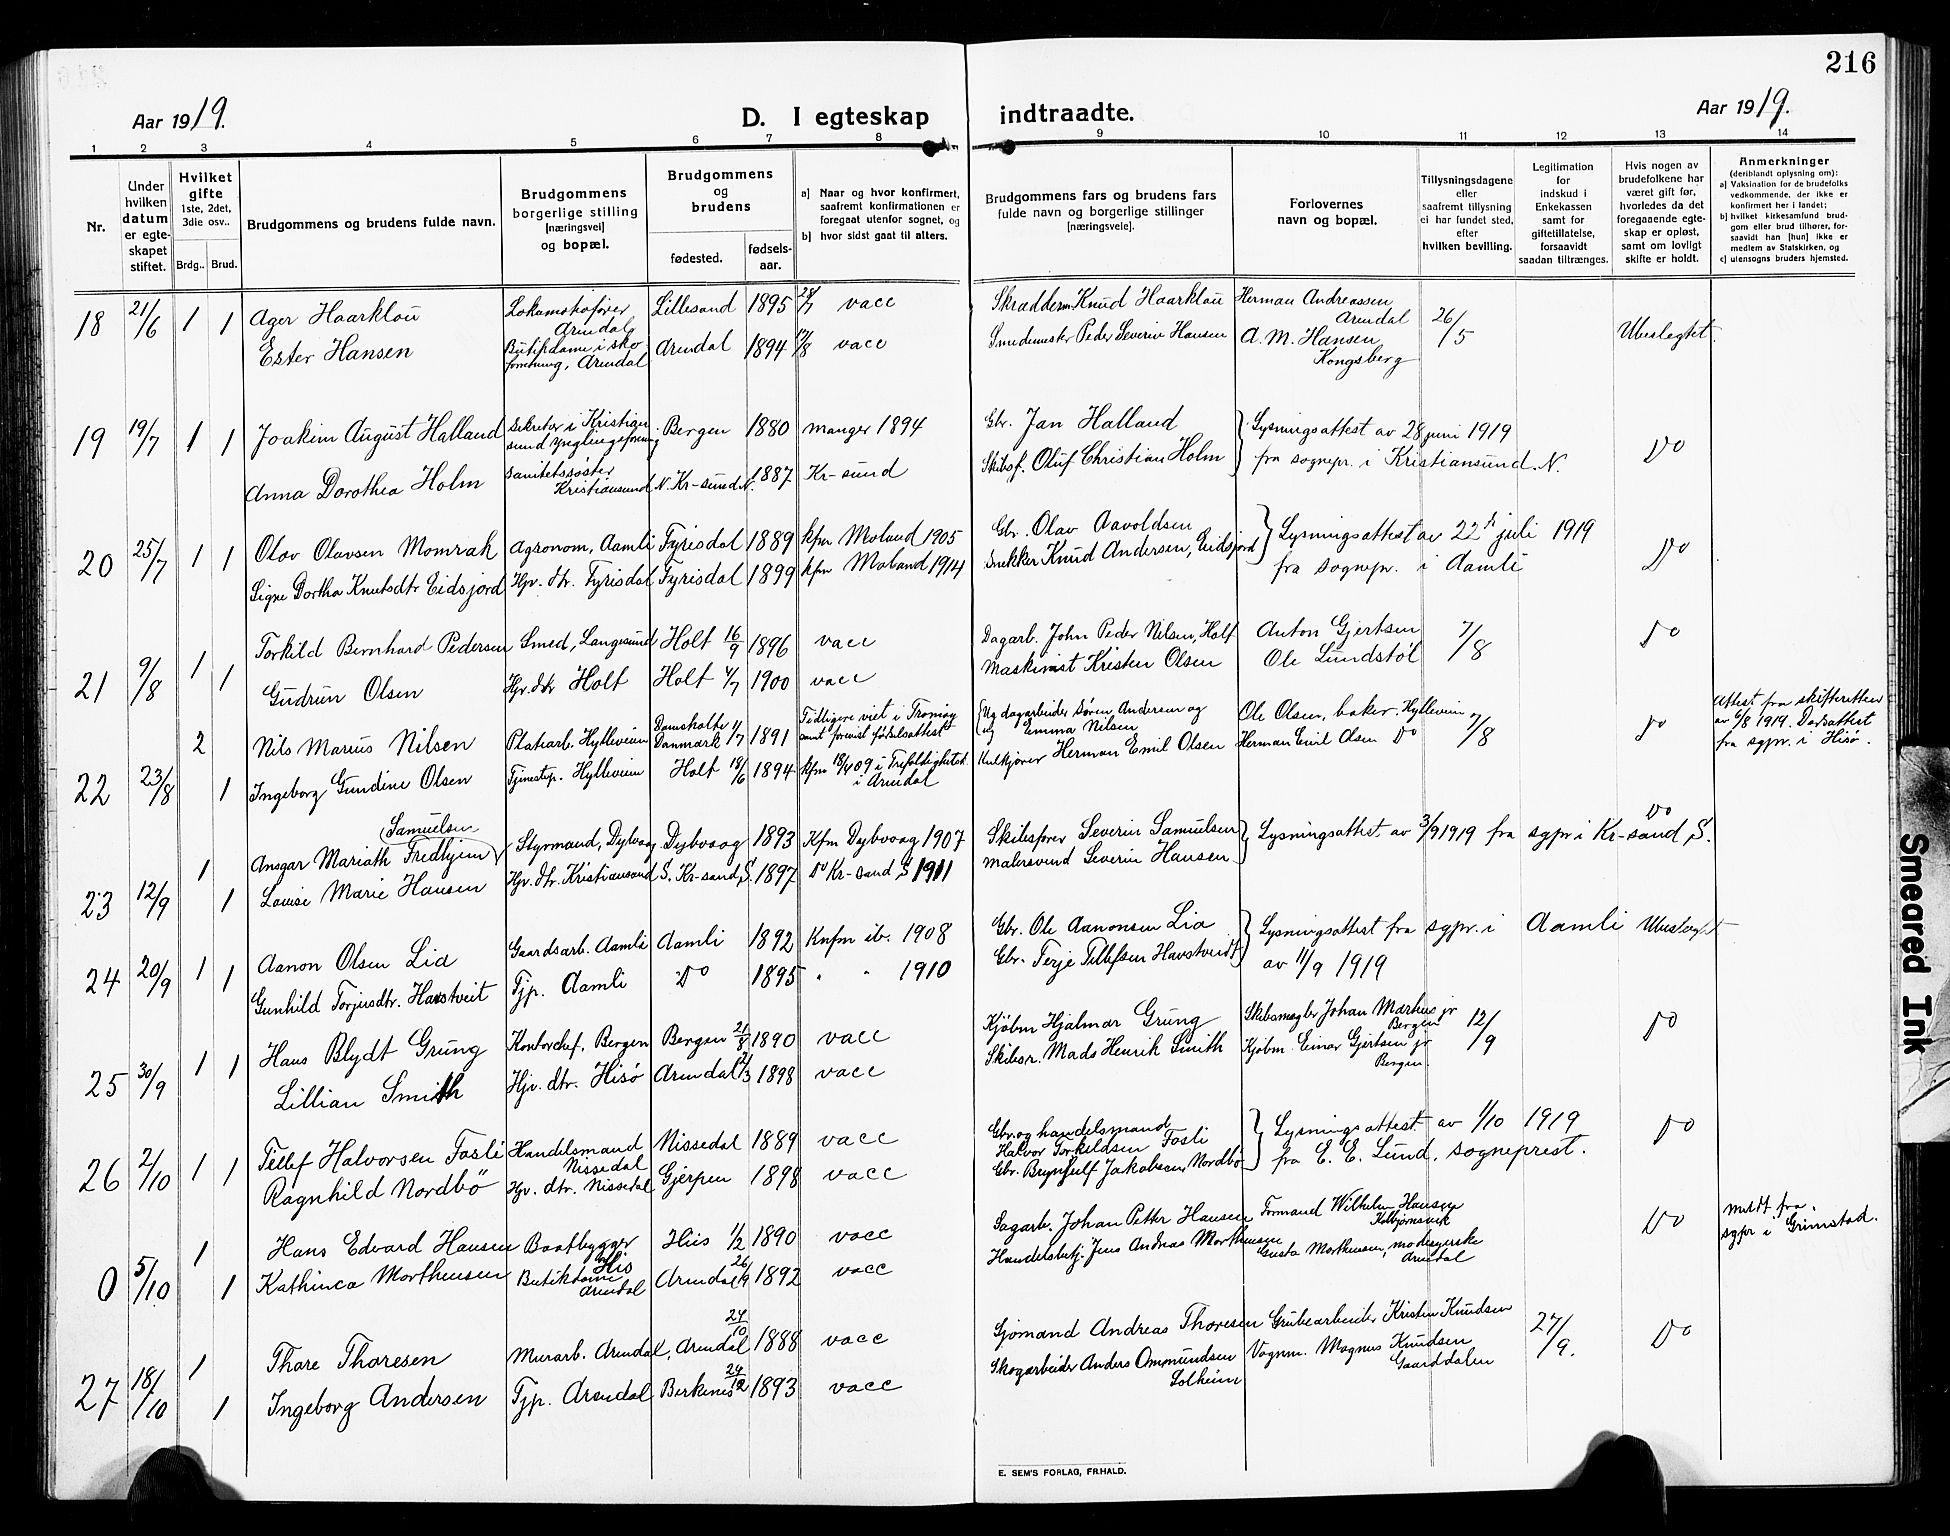 216
Aar 1919.
D. I egteskap indtraadte.
Aar 1919.
1 2 3 4 5 6 7 8 9 10 11 12 13 14
Nr.
Under hvilken datum er egteskapet stiftet.
Hvilket gifte 1ste, 2det, 3die osv..
Brdg.. Brud.
Brudgommens og brudens fulde navn.
Brudgommens borgerlige stilling [næringsvei] og bopæl.
Brudgommens og brudens
fødested.
fødsels-aar.
a) Naar og hvor konfirmert, saafremt konfirmationen er foregaat utenfor sognet, og
b) hvor sidst gaat til alters.
Brudgommens fars og brudens fars fulde navn og borgerlige stillinger [næringsveie].
Forlovernes navn og bopæl.
Tillysningsdagene eller saafremt tillysning ei har fundet sted, efter hvilken bevilling.
Legitimation for indskud i Enkekassen samt for giftetillatelse, forsaavidt saadan tiltrænges.
Hvis nogen av brudefolkene har været gift før, hvorledes da det foregaaende egteskap er opløst, samt om lovligt skifte er holdt.
Anmerkninger (deriblandt oplysning om):
a) Vaksination for de brudefolks vedkommende, der ikke er konfirmert her i landet;
b) hvilket kirkesamfund brudgom eller brud tilhører, forsaavidt han [hun] ikke er medlem av Statskirken, og
c) utensogns bruders hjemsted.
18 21/6 1 Ager Haarklou Lokomotivfører Arendal Lillesand 1895 vacc Skrædderm. Knud Haarklou Herman Andreassen Arendal 26/5 Ubeslegtet.
1 Ester Hansen Butikdame i skoforretning, Arendal Arendal 1894 vacc Smedemester Peder Severin Hansen A. M. Hansen Kongsberg
19 19/7 1 Joakim August Halland Sekretær i Kristiansund Bergen 1880 Manger 1894 Gbr. Jan Halland Lysningsattest av 28 juni 1919 Do
1 Anna Dorothea Holm Sanitetssøster Kristiansund N. Kr-sund N. 1887 Kr-sund Skibsf. Oluf Christian Holm fra sognepr. i Kristiansund. N.
20 25/7 1 Olav Olavsen Momrak Agronom, Aamli Fyrisdal 1889 kfm Moland 1905 Gbr. Olav Aavoldsen Lysningsattest av 22 juli 1919 Do
1 Signe Dortha Knutsdtr Eidsjord Hjv. dtr. Fyrisdal Fyrisdal 1899 kfm Moland 1914 Snekker Knud Andersen, Eidsjord fra sognepr. i Aamli
21 9/8 1 Torkild Bernhard Pedersen Smed, Langesund Holt 16/9 1896 vacc Dagarb. John Peder Nilsen, Holt Anton Gjertsen 7/8 Do
1 Gudrun Olsen Hjv. dtr Holt Holt 4/7 1900 vacc Maskinist Kristen Olsen Ole Lundstøl
22 23/8 2 Nils Marius Nilsen Platearb. Hylleveien Danmark 1/7 1891 Tidligere viet i Tromøy samt forevist fødselsattest Ug dagarbeider Søren Andersen og ug Emma Nilsen Ole Olsen, baker. Hylleveien 7/8 Do Attest fra skifteretten av 6/8 1919. Daasattest fra sgpr. i Hisø.
1 Ingeborg Gundine Olsen Tjenestep. Hylleveien Holt 18/6 1894 kfm 18/4 09 i Trefoldighetsk. i Arendal Kulkjører Herman Emil Olsen Herman Emil Olsen Do
23 12/9 1 Ansgar Mariath Fredhjem Samuelsen Styrmand, Dybvaag Dybvaag 1893 Kfm Dybvaag 1907 Skibsfører Severin Samuelsen Lysningsattest av 3/9 1919 fra sgpr i Kr-sand S. Do
1 Louise Marie Hansen Hjv. dtr. Kristiansand S. Kr-sand S. 1897 Do Kr-sand S 1911 Malersvend Severin Hansen
24 20/9 1 Aanon Olsen Lia Gaardsarb. Aamli Aamli 1892 Knfm ib. 1908 Gbr. Ole Aanonsen Lia Lysningsattest fra sgpr. i Aamli Ubeslegtet
1 Gunhild Torjusdtr. Havstveit Tjp. Aamli Do 1895 " " 1910 Gbr. Terje Tellefsen Havstveidt av 11/9 1919
25 30/9 1 Hans Blydt Grung Kontorchef, Bergen Bergen 21/8 1890 vacc Kjøbm Hjalmar Grung Skibsmegler Johan Martens jr Bergen 12/9 Do
1 Lillian Smith Hjv. dtr. Hisø Arendal 1898 vacc Skibsr. Mads Henrik Smith Kjøbm. Einar Gjertsen jr Bergen.
26 2/10 1 Tellef Halvorsen Fosli Handelsmand Nissedal Nissedal 1889 vacc Gbr. og handelsmand Halvor Torkildsen Fosli Lysningsattest av 1/10 1919 Do
1 Ragnhild Nordbö Hjv. dtr. Nissedal Gjerpen 1898 vacc Gbr. Brynjulf Jakobsen, Nordbö fra E. E. Lund, sogneprest.
0 5/10 1 Hans Edvard Hansen Baatbygger His Hiis 1/2 1890 vacc Sagarb. Johan Petter Hansen Formand Wilhelm Hansen Kolbjørnsvik Do Meldt fra sgpr i Grimstad.
1 Kathinca Morthensen Butikdame Arendal Arendal 26/9 1892 vacc Handelsbetj. Jens Andreas Morthensen Gusta Morthensen, modesyerske Arendal
27 18/10 1 Thore Thoresen Murarb. Arendal, Arendal 24/10 1888 vacc Sjømand Andreas Thoresen Grubearbeider Kristen Knudsen 27/9. Do
1 Ingeborg Andersen Tjp. Arendal Berkenes 24/12 1893 vacc Skogarbeider Anders Ommundsen Solheim Vognm. Magnus Knudsen Gaarddalen
E. SEM'S FORLAG, FR.HALD.
Smeared Ink